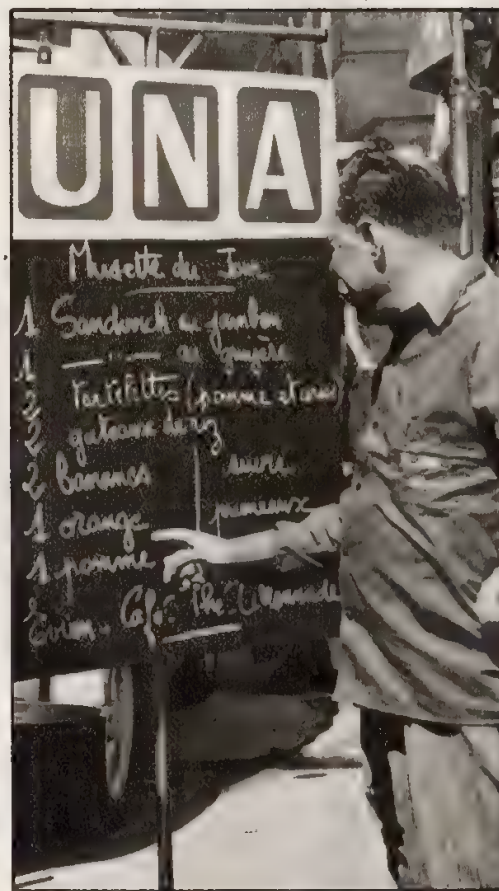 UNA
Musette du Jour
1 Sandwich au jambon
1 — " — au gruyère
2 Tartelettes (pomme et
2 gateaux de riz
2 bananes sucre
1 orange pruneaux
1 pomme
Café Thé